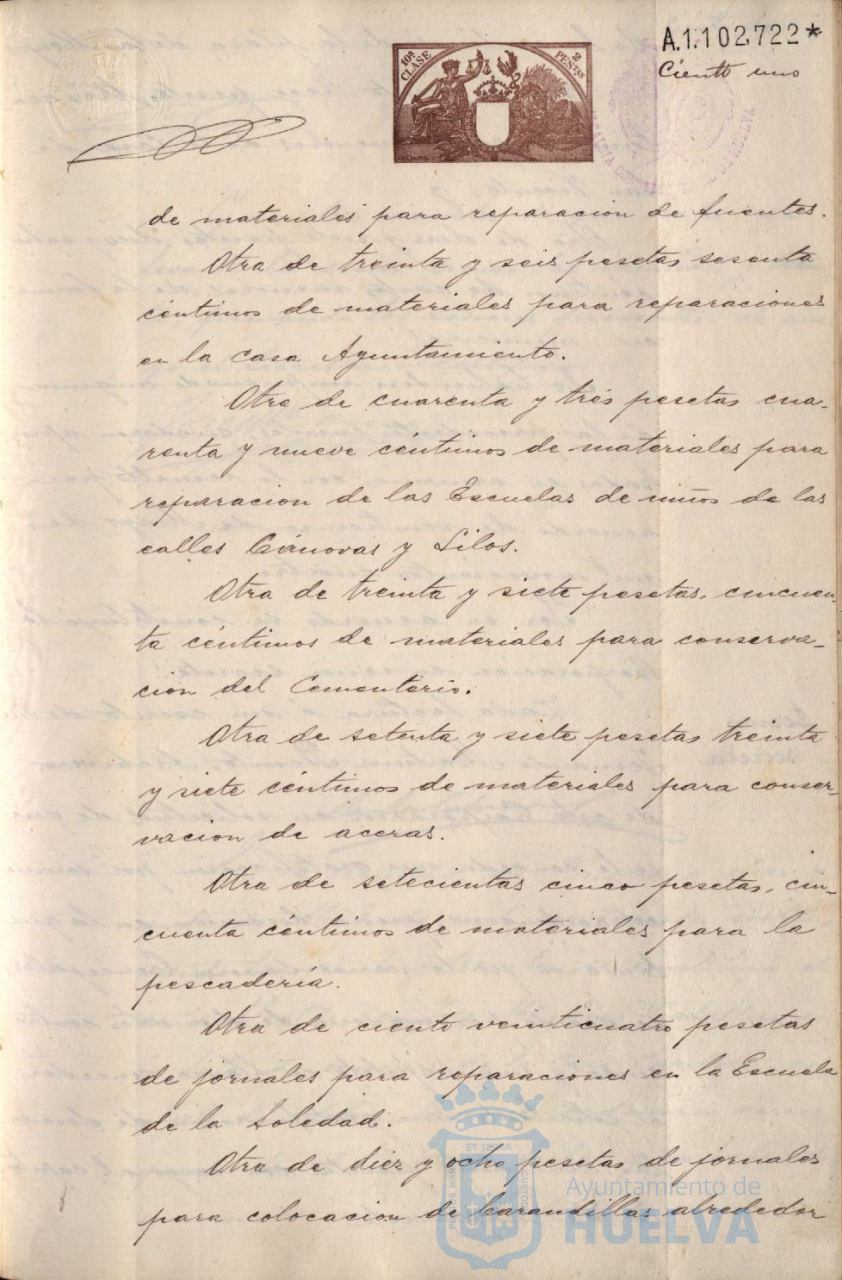 A.1.102,722*
Ciento uno
10ª CLASE
2 PESETAS
de materiales para reparacion de fuentes.
Otra de treinta y seis pesetas sesenta
céntimos de materiales para reparaciones
en la casa Ayuntamiento.
Otra de cuarenta y tres pesetas cua-
renta y nueve céntimos de materiales para
reparacion de las Escuelas de niños de las
calles Cánovas y Silos.
Otra de treinta y siete pesetas, cincuen-
ta céntimos de materiales para conserva-
cion del Cementerio.
Otra de setenta y siete pesetas treinta
y siete céntimos de materiales para conser-
vacion de aceras.
Otra de setecientas cinco pesetas, cin-
cuenta céntimos de materiales para la
pescadería.
Otra de ciento veinticuatro pesetas
de jornales para reparaciones en la Escuela
de la Soledad.
Otra de diez y ocho pesetas de jornales
para colocacion de barandillas alrededor
Ayuntamiento de
HUELVA